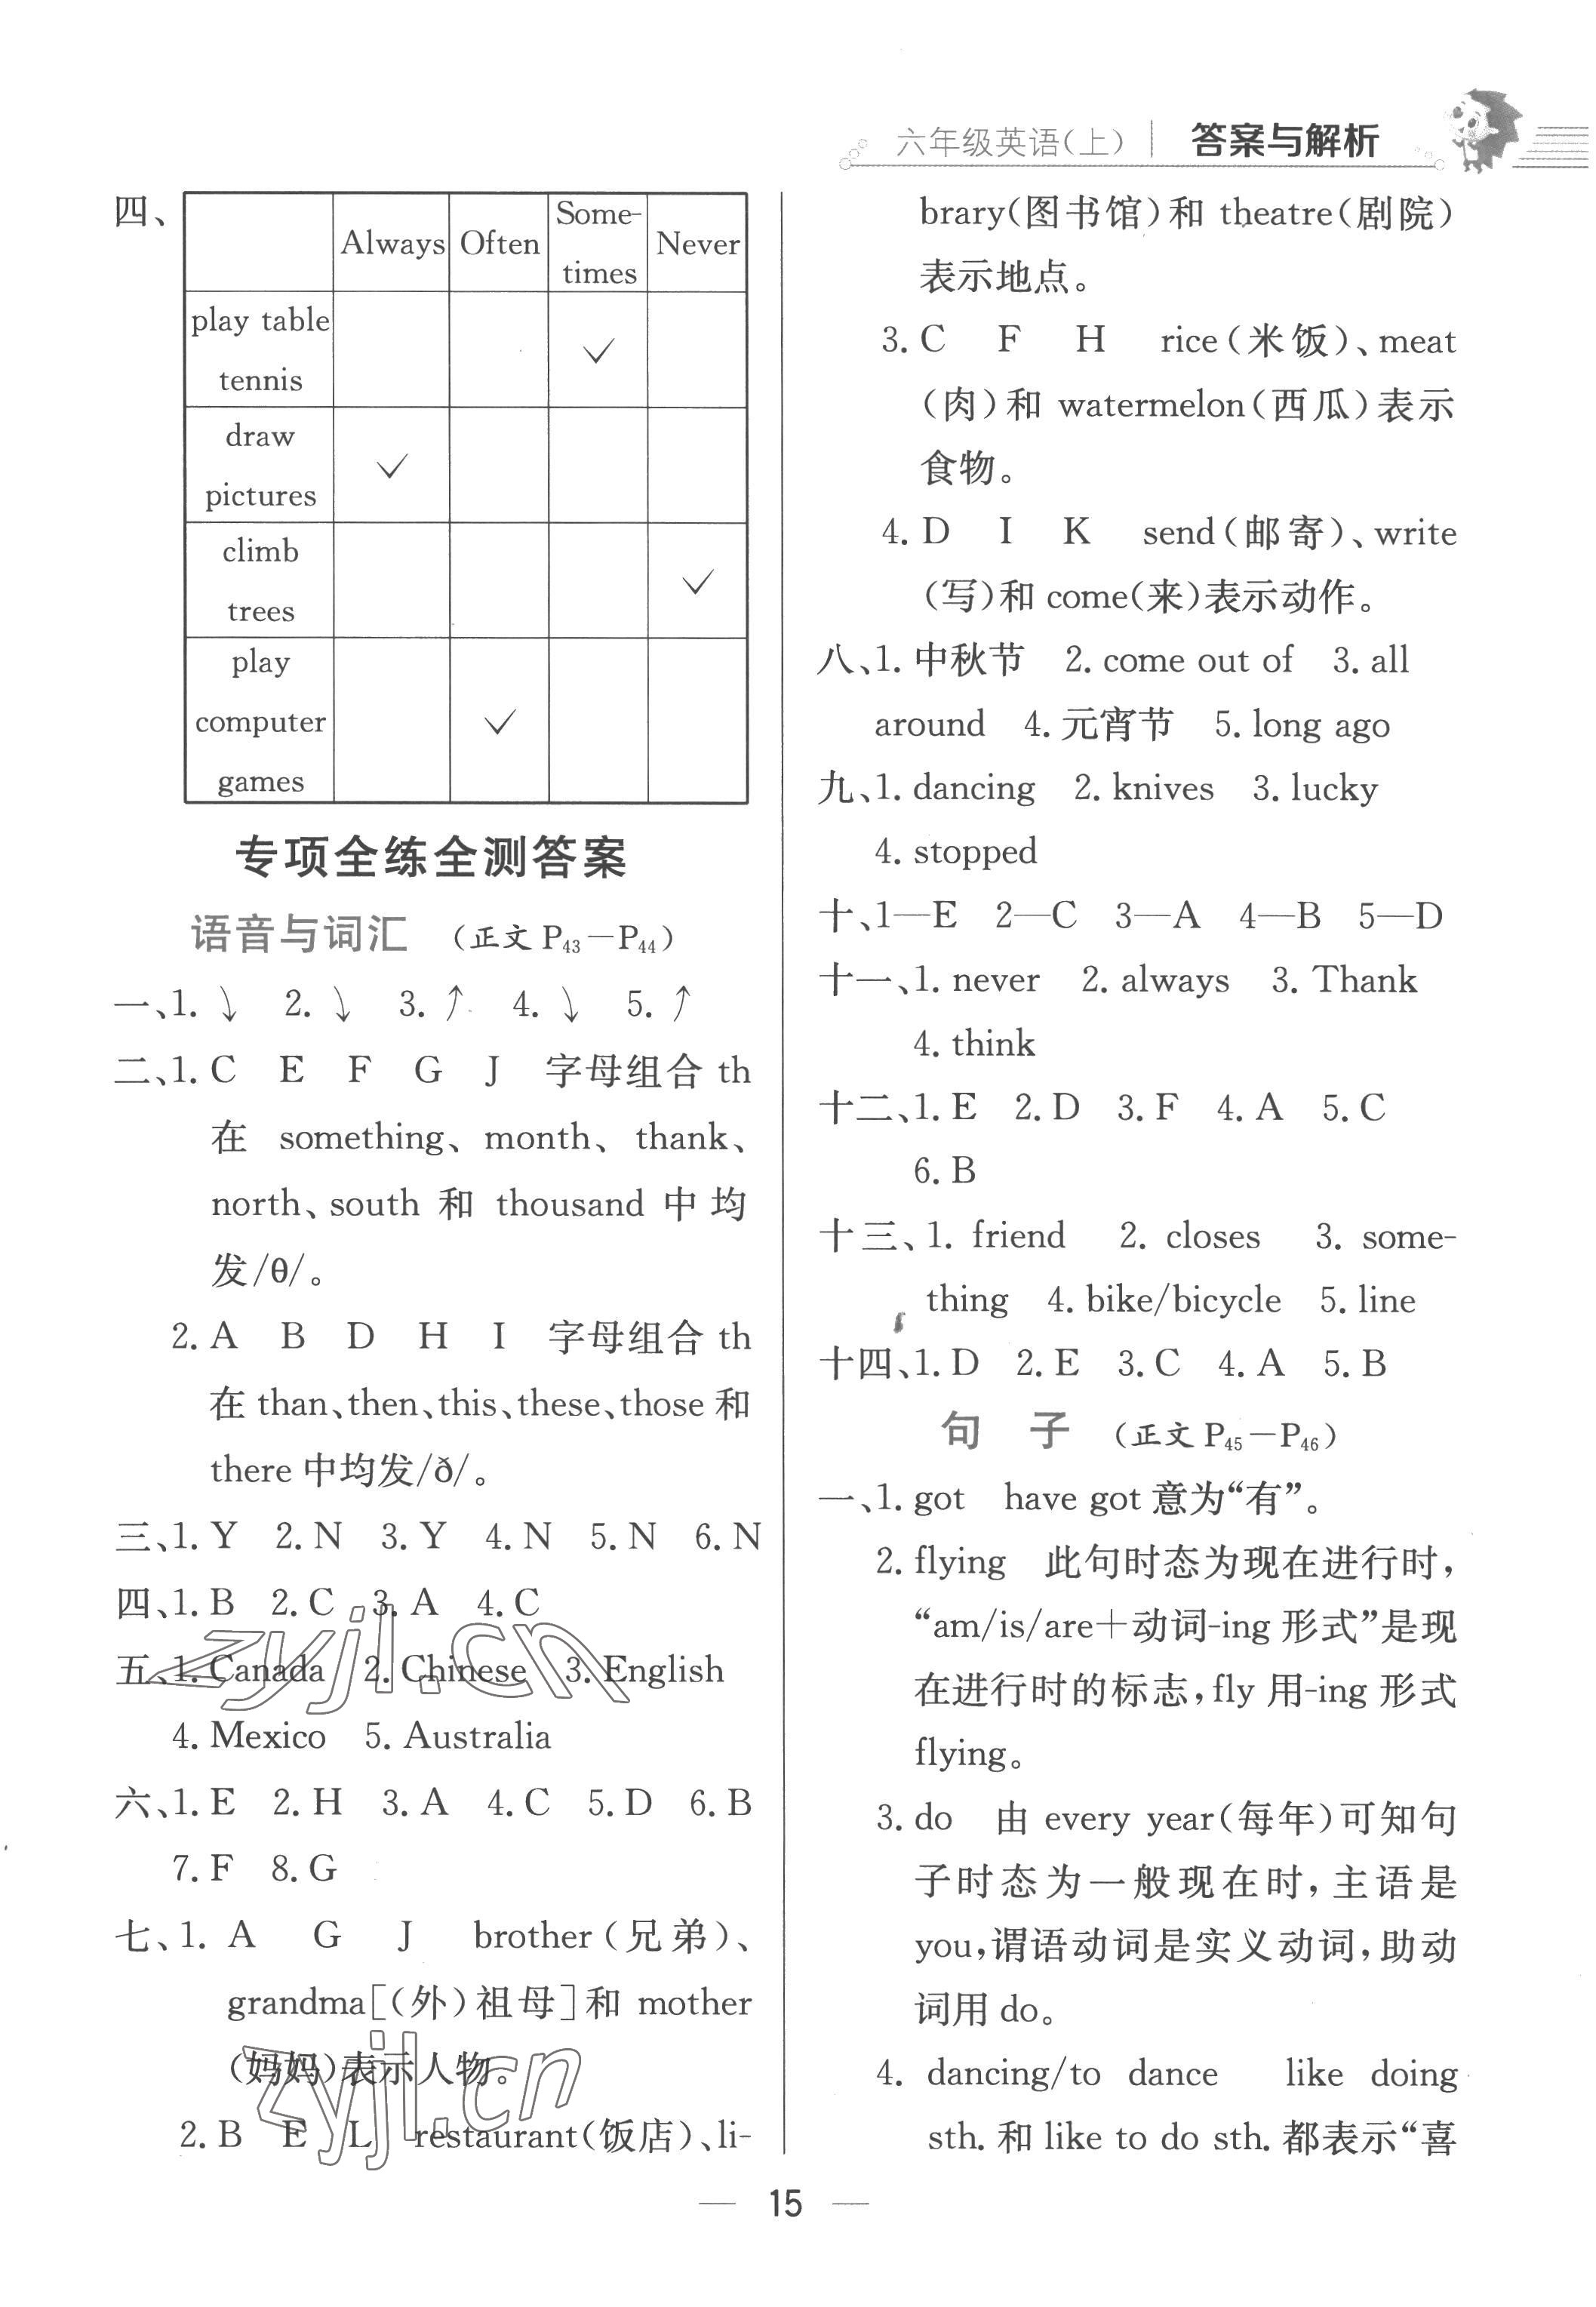 六年级英语(上) 答案与解析
四、
Always Often Some-times Never
play table tennis ✓
draw pictures ✓
climb trees ✓
play computer games ✓
专项全练全测答案
语音与词汇 (正文 P43—P44)
一、1. ↘ 2. ↘ 3. ↗ 4. ↘ 5. ↗
二、1. C E F G J 字母组合 th
在 something、month、thank、
north、south 和 thousand 中均
发/θ/。
2. A B D H I 字母组合 th
在 than、then、this、these、those 和
there 中均发/ð/。
三、1. Y 2. N 3. Y 4. N 5. N 6. N
四、1. B 2. C 3. A 4. C
五、1. Canada 2. Chinese 3. English
4. Mexico 5. Australia
六、1. E 2. H 3. A 4. C 5. D 6. B
7. F 8. G
七、1. A G J brother(兄弟)、
grandma[(外)祖母]和 mother
(妈妈)表示人物。
2. B E L restaurant(饭店)、li-
brary(图书馆)和 theatre(剧院)
表示地点。
3. C F H rice(米饭)、meat
(肉)和 watermelon(西瓜)表示
食物。
4. D I K send(邮寄)、write
(写)和 come(来)表示动作。
八、1. 中秋节 2. come out of 3. all
around 4. 元宵节 5. long ago
九、1. dancing 2. knives 3. lucky
4. stopped
十、1—E 2—C 3—A 4—B 5—D
十一、1. never 2. always 3. Thank
4. think
十二、1. E 2. D 3. F 4. A 5. C
6. B
十三、1. friend 2. closes 3. some-
thing 4. bike/bicycle 5. line
十四、1. D 2. E 3. C 4. A 5. B
句 子 (正文 P45—P46)
一、1. got have got 意为“有”。
2. flying 此句时态为现在进行时,
“am/is/are+动词-ing 形式”是现
在进行时的标志,fly 用-ing 形式
flying。
3. do 由 every year(每年)可知句
子时态为一般现在时,主语是
you,谓语动词是实义动词,助动
词用 do。
4. dancing/to dance like doing
sth. 和 like to do sth. 都表示“喜
zyjl.cn
zyjl.cn
— 15 —